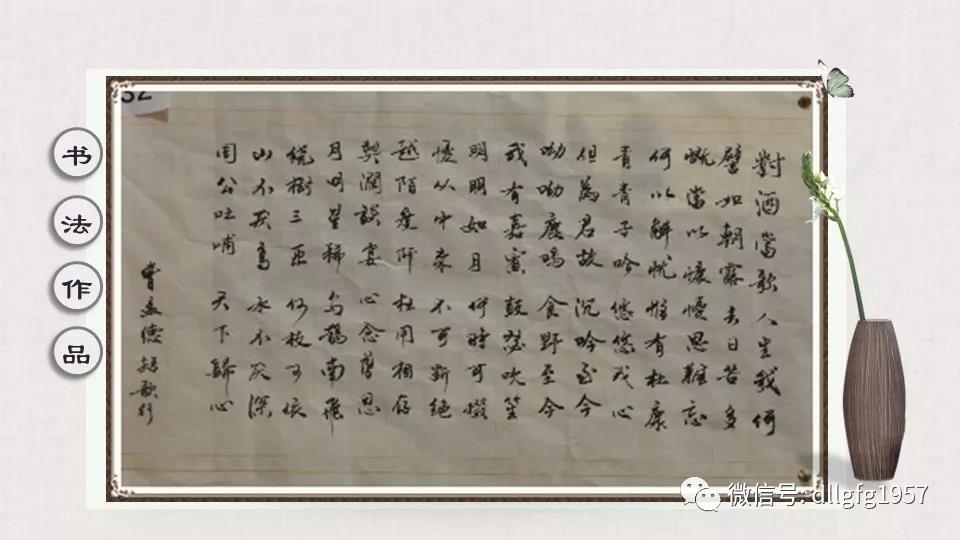 书法作品
32
對酒當歌人生幾何
譬如朝露去日苦多
慨當以慷憂思難忘
何以解忧惟有杜康
青青子吟悠悠我心
但為君故沉吟至今
呦呦鹿鳴食野至今
我有嘉賓鼓瑟吹笙
明明如月何時可掇
憂从中来不可斷絕
越陌度阡枉用相存
契濶談宴心念舊恩
月明星稀乌鵲南飛
繞樹三匝何枝可依
山不厌高水不厌深
周公吐哺天下歸心
曹孟德短歌行
微信号: dllgfg1957